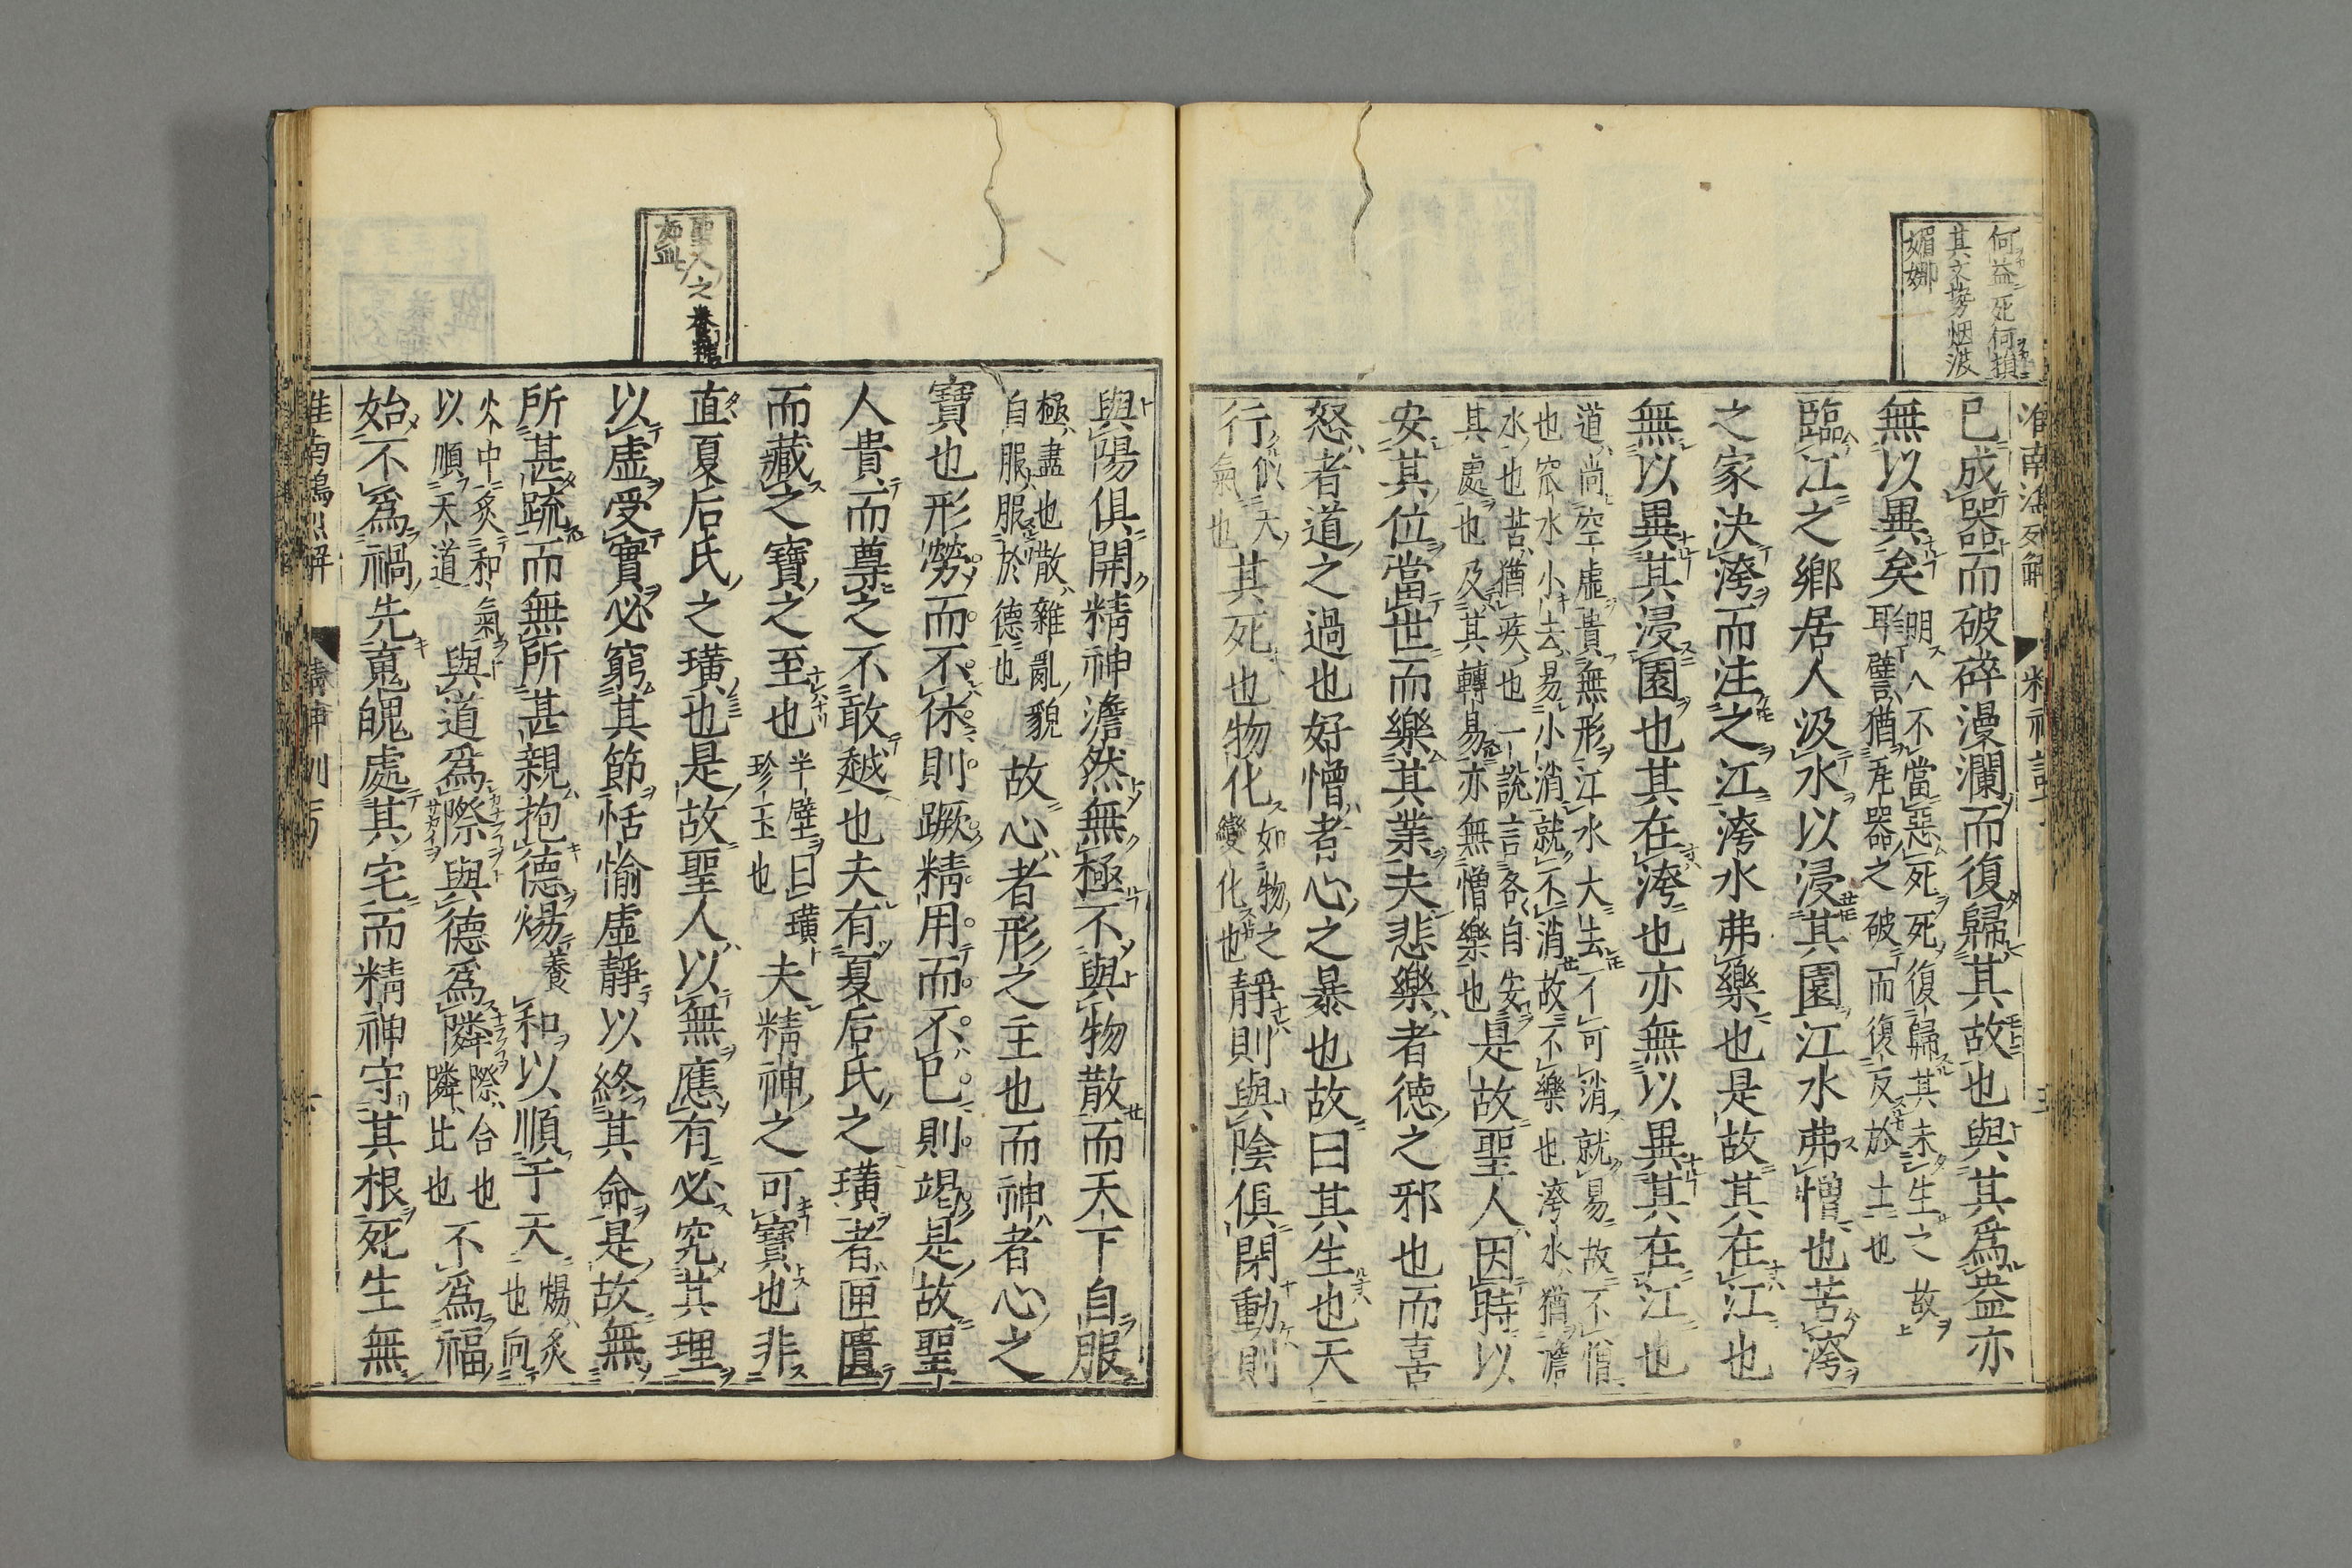 何益死何損
其文勢烟波
媚娜
已成器而破碎漫瀾而復歸其故也與其爲盆亦
無以異矣明人不當惡死死復歸其未生之故
耳譬猶瓦器之破而復反於土也
臨江之鄉居人汲水以浸其園江水弗憎也苦洿
之家決洿而注之江洿水弗樂也是故其在江也
無以異其浸園也其在洿也亦無以異其在江也
道尚空虛貴無形江水大去不可消就易故不憎
也窊水小去易小消就不消故不樂也洿水猶澹
水也苦猶疾也一說言各自安
其處也及其轉易亦無憎樂也是故聖人因時以
安其位當世而樂其業夫悲樂者德之邪也而喜
怒者道之過也好憎者心之暴也故曰其生也天
行似天
氣也其死也物化如物之
變化也靜則與陰俱閉動則
聖人之
與陽俱開精神澹然無極不與物散而天下自服
極盡也散雜亂貌
自服服於德也故心者形之主也而神者心之
寶也形勞而不休則蹶精用而不已則竭是故聖
人貴而尊之不敢越也夫有夏后氏之璜者匣匱
而藏之寶之至也半壁曰璜
珍玉也夫精神之可寶也非
直夏后氏之璜也是故聖人以無應有必究其理
以虛受實必窮其節恬愉虛靜以終其命是故無
所甚疏而無所甚親抱德煬養和以順于天煬炙也向
火中炙和氣
以順天道與道爲際與德爲隣際合也
隣比也不爲福
始不爲禍先䰟魄處其宅而精神守其根死生無